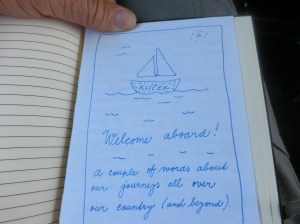 Welcome aboard!
A couple of words about
our journeys all over
our country (and beyond).